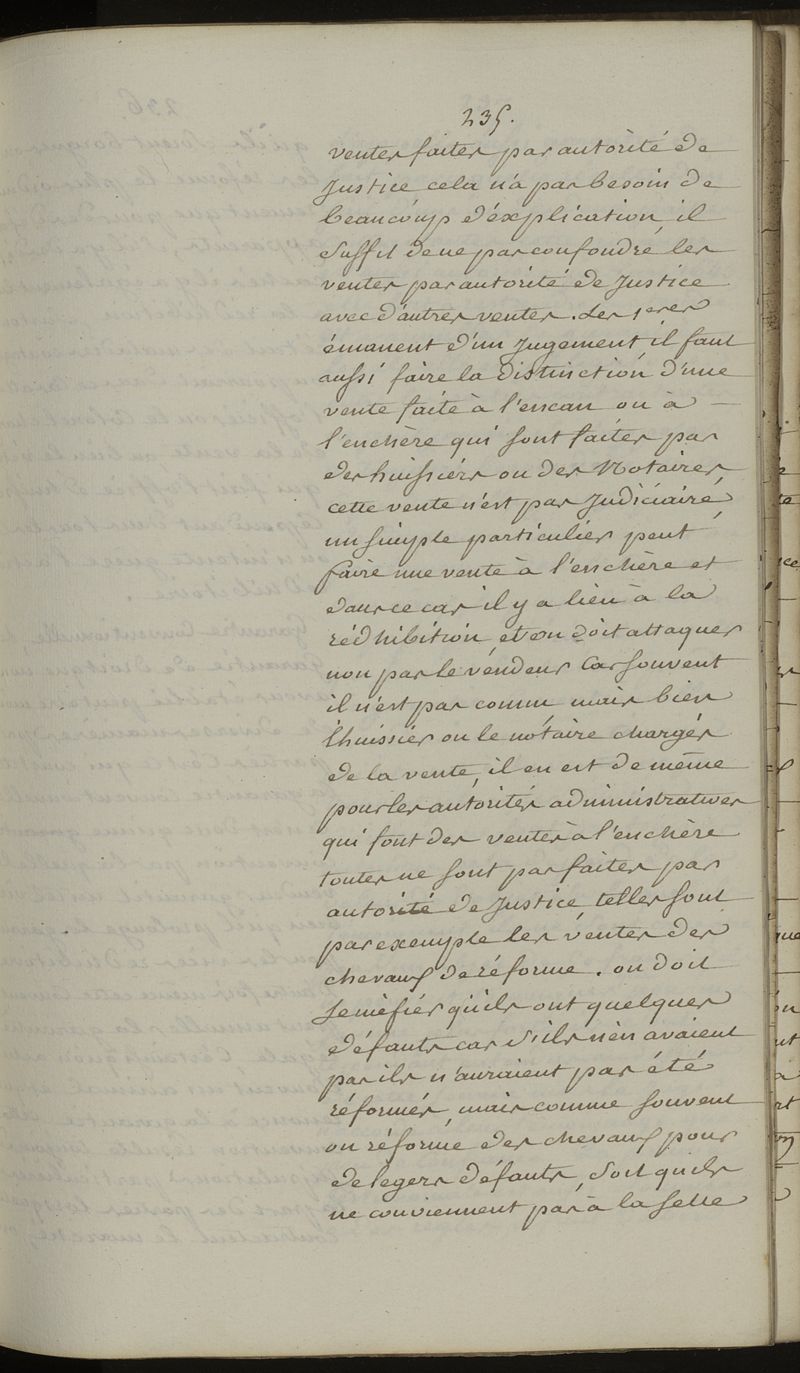 235.
ventes faites par autorité de
Justice cela n'a pas besoin de
beaucoup d'éxplication, il
suffit de ne pas confondre les
ventes par autorité de Justice
avec d'autres ventes. Les 1eres
émanent d'un Jugement, il faut
aussi faire la distinction d'une
vente faite à l'encan ou à —
l'enchère qui sont faites par
des huissiérs ou des Notaires,
cette vente n'est pas Judiciaire,
un simple particulier peut
faire une vente à l'enchère et
dans ce cas il y a lieu à la
rédhibition, et on doit attaquer
non pas le vendeur Car souvent
il n'est pas connu mais bien
l'huissier ou le notaire chargés
de la vente, il en est de même
pour les autorités administratives
qui font des ventes à l'enchère
toutes ne sont pas faites par
autorité de Justice telles sont
par exemple les ventes des
chevaux de réforme. on doit
se méfiér qu'ils ont quelques
défauts car s'ils n'en avaient
pas ils n'auraient pas été
réformés, mais comme souvent
on réforme des chevaux pour
de legers défauts, soit qu'ils
ne conviennent pas à la selle